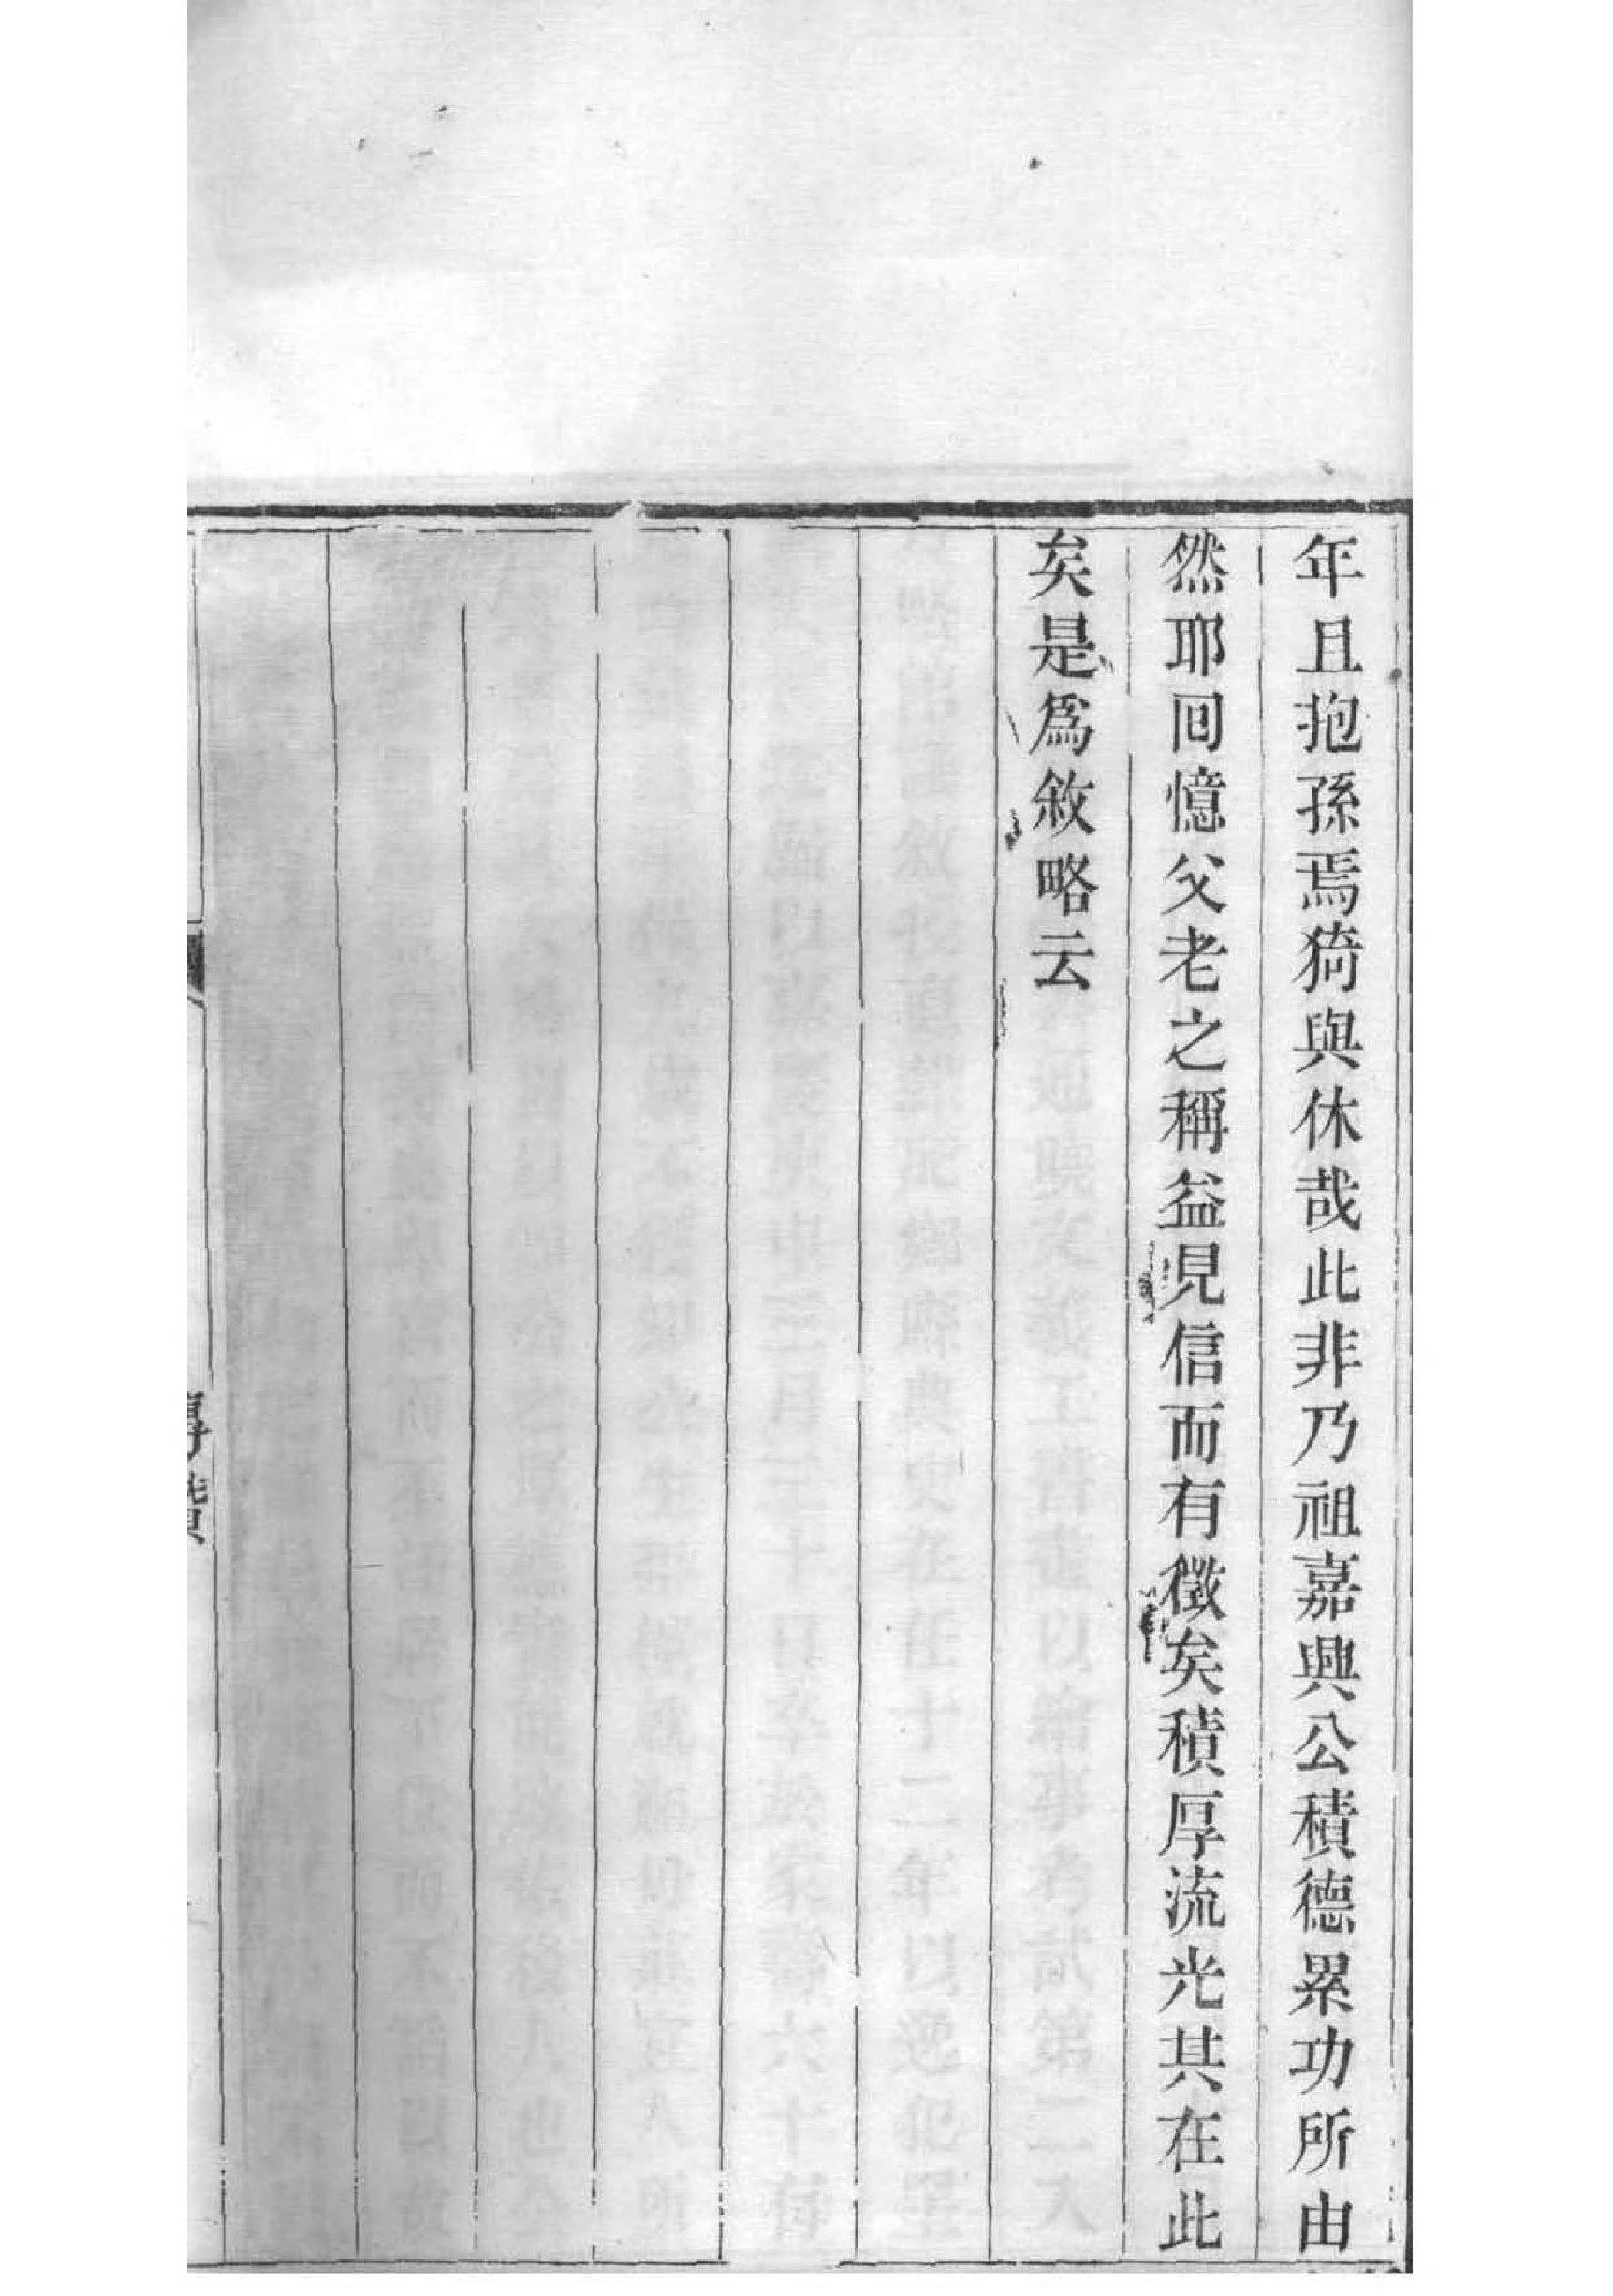 年且抱孫焉猗與休哉此非乃祖嘉興公積德累功所由
然耶回憶父老之稱益見信而有徵矣積厚流光其在此
矣是為敘略云